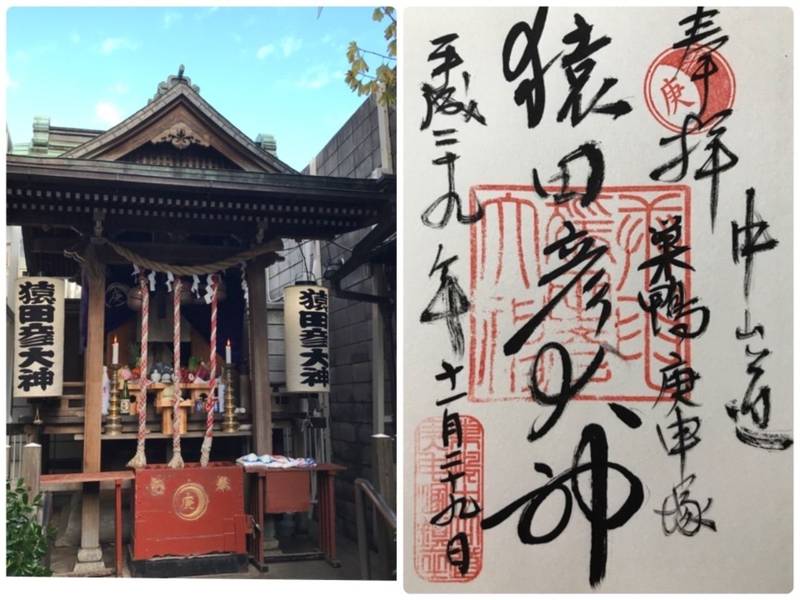 猿田彦大神
猿田彦大神
奉
庚
奉拝
庚
中山道
巣鴨庚申塚
猿田彦大神
平成二十九年十一月二十九日